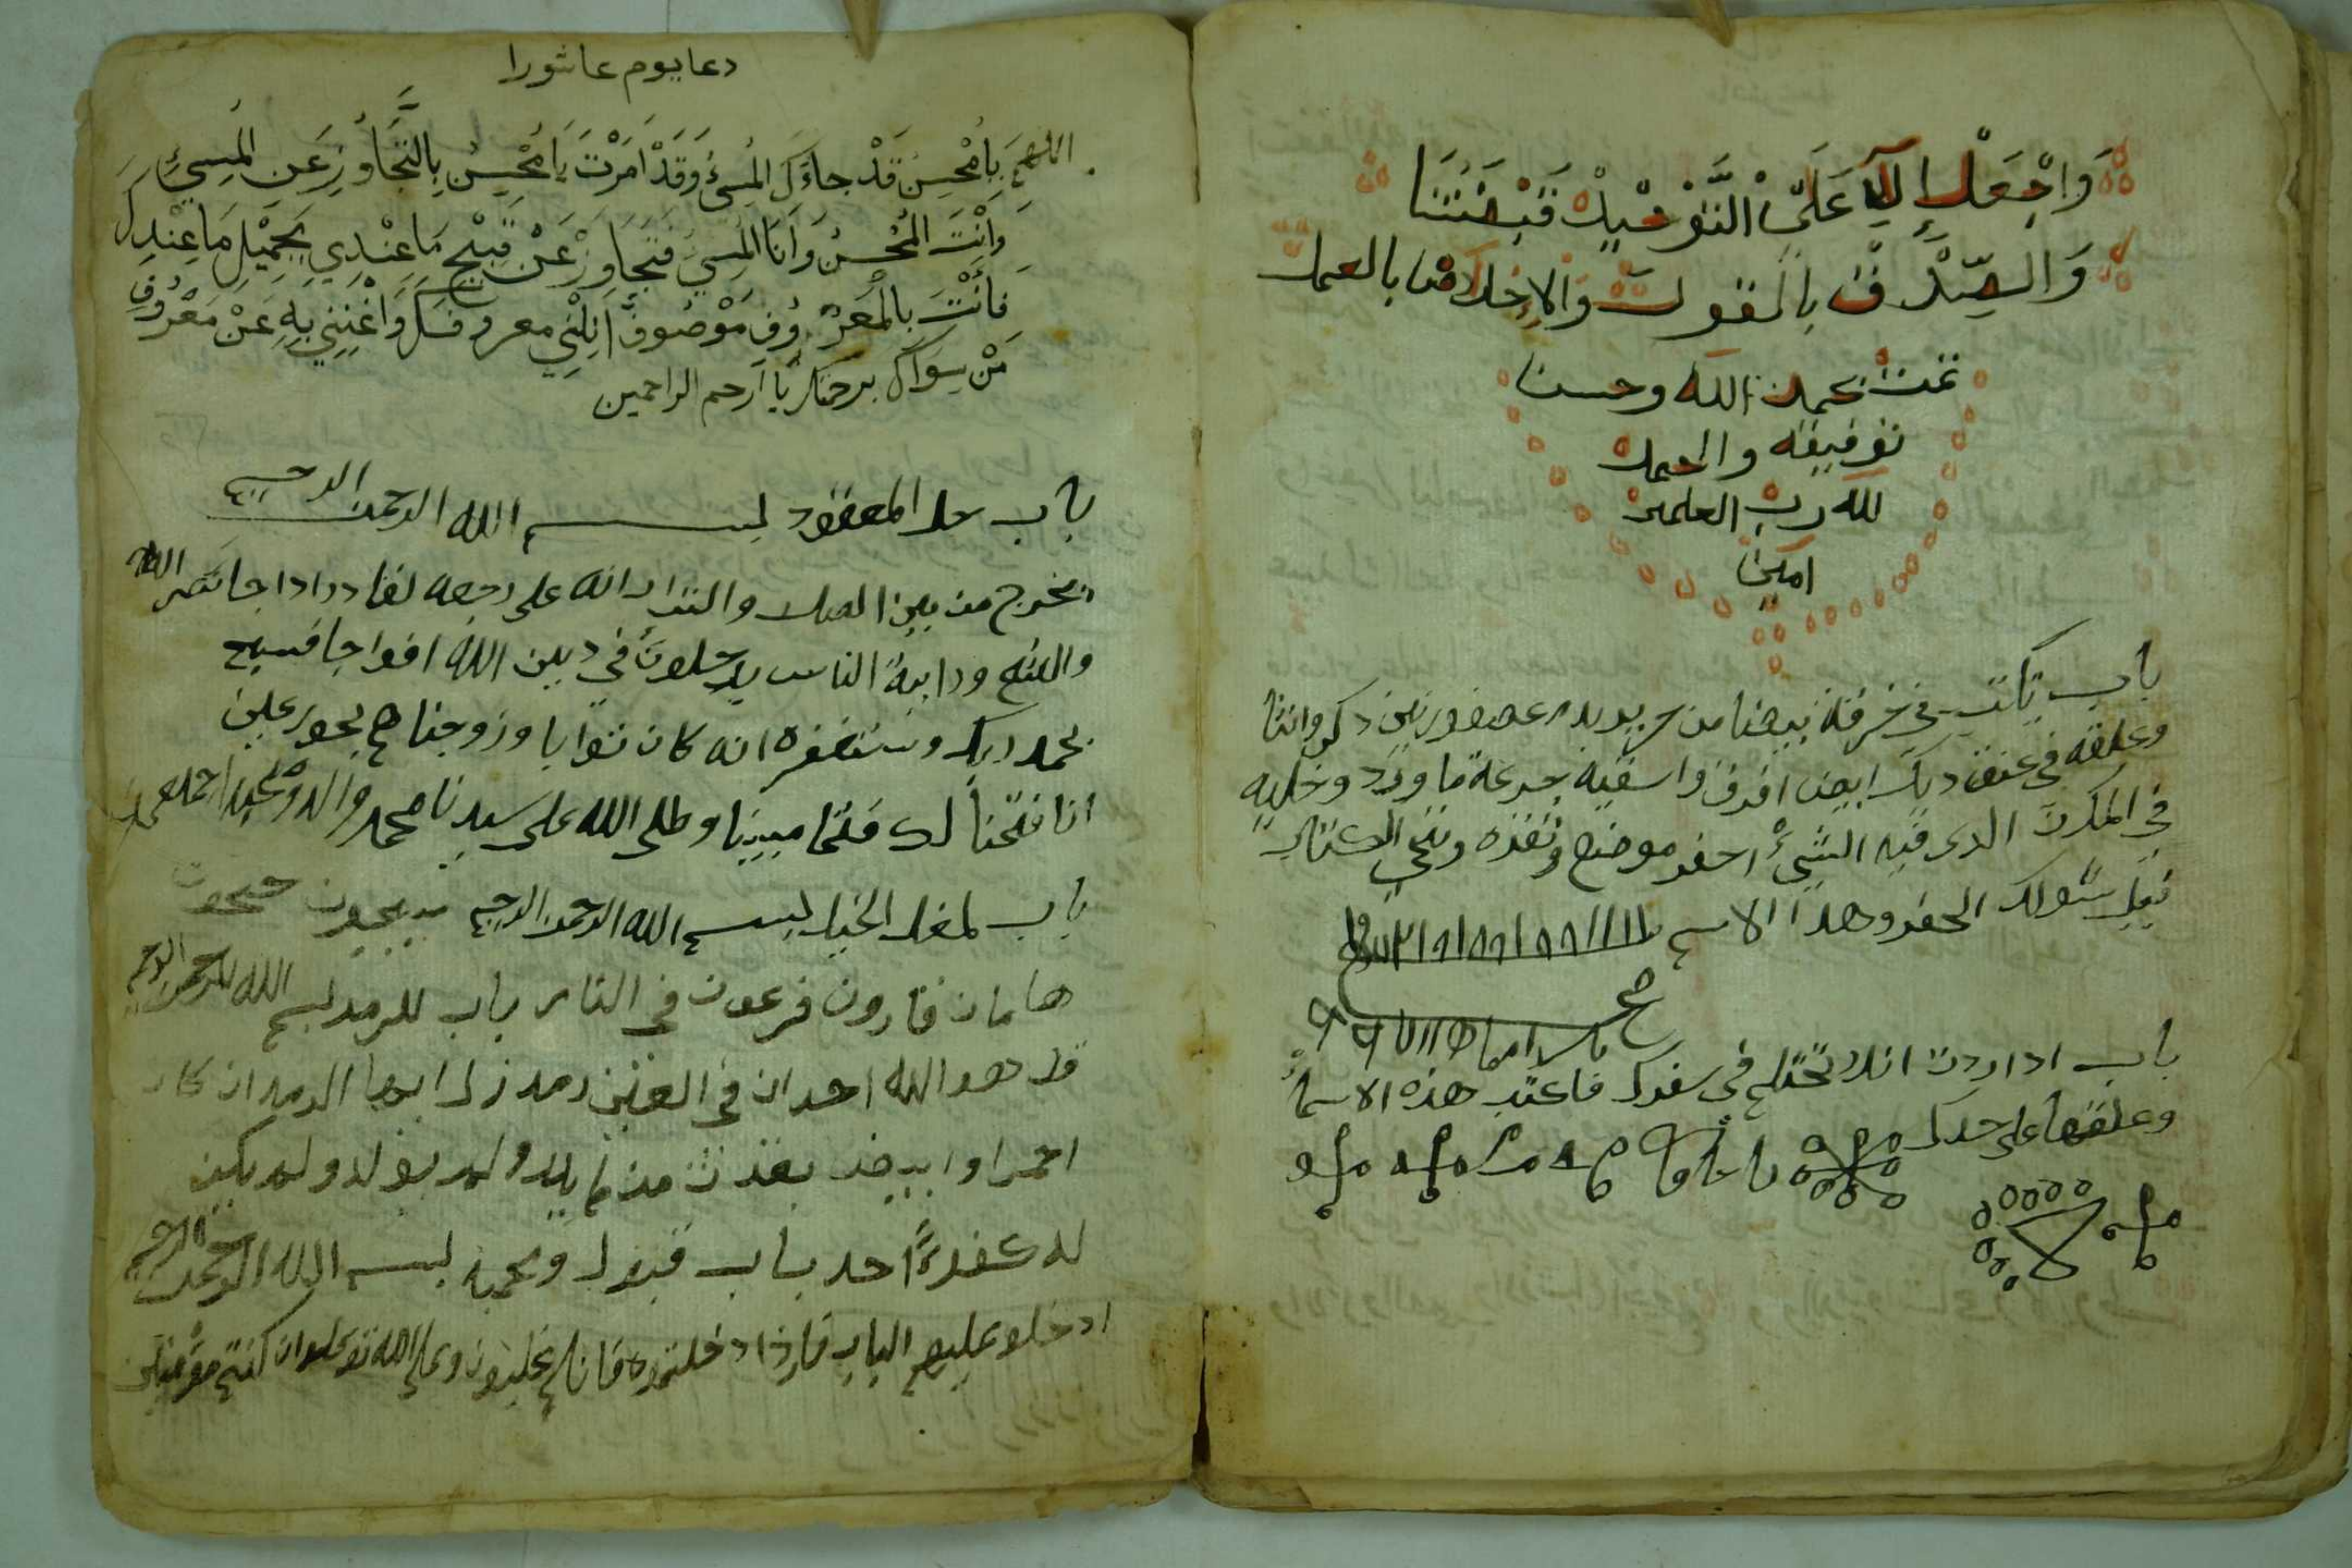 وَاجْعَلْ اللهم عَلَى التَّوْحِيدْ قَبْضَتَنَا
وَالصِّدْق بِالقول وَالإِخلاص بالعمل
تمت بحمد الله وحسن
توفيقه والحمد
لله رب العلمين
امين
باب يكتب في خرقة بيضا من حرير بدم عصفورين دكر وانثا
وعلقه في عنق ديك ابيض افرق واسقيه جرعة ما ورد وخليه
في المكان الدى فيه الشيء احفر موضع ونقزه وتنجي الكتاب
الحفر وهدا الاسم
باب ادا اردت انك تحتلم في سفرك فاكتب هذه الاسما
وعلقها على خدك
دعا يوم عاشورا
اللهم يَا مُحْسِن قَدْ جاءَكَ المُسِيءُ وَقَدْ اَمَرْتَ يَا مُحْسِنُ بِالتَّجَاوُزِ عَنِ المُسِيءِ
وَأَنْتَ المُحْسِنُ وَأَنَا المُسِيءُ فَتَجَاوَزْ عَنْ قَبِيْحِ مَا عِنْدِي بِجَمِيْلِ مَا عِنْدِكَ
فَأَنْتَ بِالْمَعْرُوفِ مَوْصُوفٌ أَنِلْنِي معروفكَ وَاغْنِنِي بِهِ عَنْ مَعْرُوفِ
مَنْ سِوَاكَ برحمتك يَا أرحم الراحمين
باب حل المعقود بسم الله الرحمن الرحيم
يخرج من بين الصلب والترايب انه على رجعه لقادر ادا جا نصر الله
والفتح ورايت الناس يدخلون في دين الله افواجا فسبح
بحمد ربك وستغفره انه كان توابا وزوجناهم بحور عين
انا فتحنا لك فتحا مبينا وصلى الله على سيدنا محمد واله وصحبه
باب لمغل الخيل بسم الله الرحمن الرحيم
هامان قارون فرعون في النار باب للرمد بسم الله الرحمن الرحيم
قل هو الله احد ان في العين رمد زل ايها الرمد ان كان
احمر او ابيض بقدرت من لم يلد ولم يولد ولم يكن
له كفوءًا احد باب قبول ومحبه بسم الله الرحمن الرحيم
ادخلو عليهم الباب فاذا دخلتموه فانكم غلبون وعلى الله توكلو ان كنتم مؤمنين